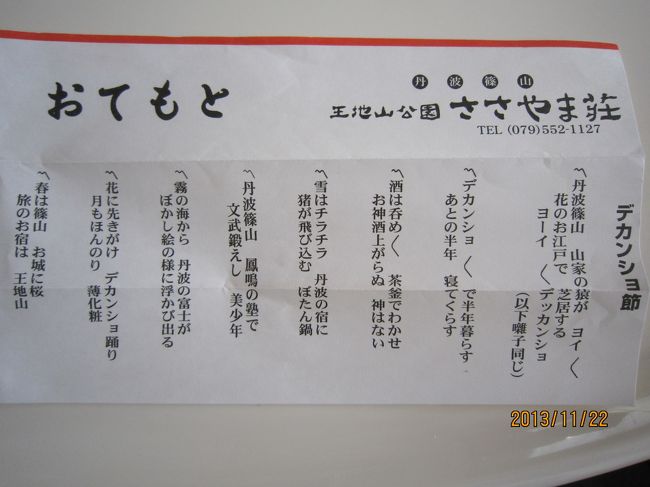 おてもと
丹波篠山
王地山公園 ささやま荘
TEL (079)552-1127
デカンショ節
〽丹波篠山 山家の猿が ヨイ〱
花のお江戸で 芝居する
ヨーイ 〱デッカンショ
(以下囃子同じ)
〽デカンショ〱で半年暮らす
あとの半年 寝てくらす
〽酒は呑め〱 茶釜でわかせ
お神酒上がらぬ 神はない
〽雪はチラチラ 丹波の宿に
猪が飛び込む ぼたん鍋
〽丹波篠山 鳳鳴の塾で
文武鍛えし 美少年
〽霧の海から 丹波の富士が
ぼかし絵の様に浮かび出る
〽花に先きがけ デカンショ踊り
月もほんのり 薄化粧
〽春は篠山 お城に桜
旅のお宿は 王地山
2013/11/22